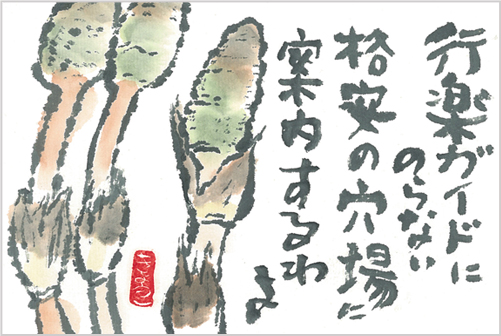 行楽ガイドに
のらない
格安の穴場に
案内するわ